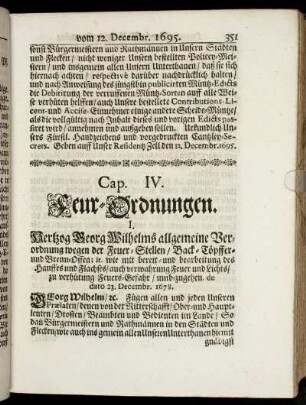 vom 12. Decembr. 1695. 351
sonst Bürgermeistern und Rathmännen in Unsern Städten
und Flecken / nicht weniger Unsern bestellten Policey-Mei-
stern / und insgemein allen Unsern Unterthanen / daß sie sich
hiernach achten / respectivè darüber nachdrücklich halten /
und nach Anweisung des jüngsthin publicirten Müntz-Edicts
die Debitirung der verruffenen Müntz-Sorten auff alle Wei-
se verhüten helffen / auch Unsere bestellete Contributions-Li-
cent- und Accis-Einnehmer einige andere Scheide-Müntze /
als die vollgültig nach Inhalt dieses und vorigen Edicts pas-
siret wird / annehmen und außgeben sollen. Uhrkundlich Un-
sers Fürstl. Handzeichens und vorgedruckten Cantzley-Se-
crets. Geben auff Unser Residentz Zell den 12. Decembr. 1695.
Cap. IV.
Feur-Ordnungen.
I.
Hertzog Georg Wilhelms allgemeine Ver-
ordnung wegen der Feuer-Stellen / Back-Töpffer-
und Brenn-Offen: it. wie mit bereit- und bearbeitung des
Hanffes und Flachses / auch verwahrung Feuer und Liechts /
zu verhütung Feuers-Gefahr / umbzugehen. de
dato 23. Decembr. 1678.
GEorg Wilhelm / rc. Fügen allen und jeden Unsern
Præla[ten] denen von der Ritterschafft / Ober-und Haupt-
leuten / Drosten / Beambten und Bedienten im Lande / So-
dan Bürgermeistern und Rathmännen in den Städten und
Flecken / wie auch ins gemein allen Unsern Unterthanen hiemit
gnädigst